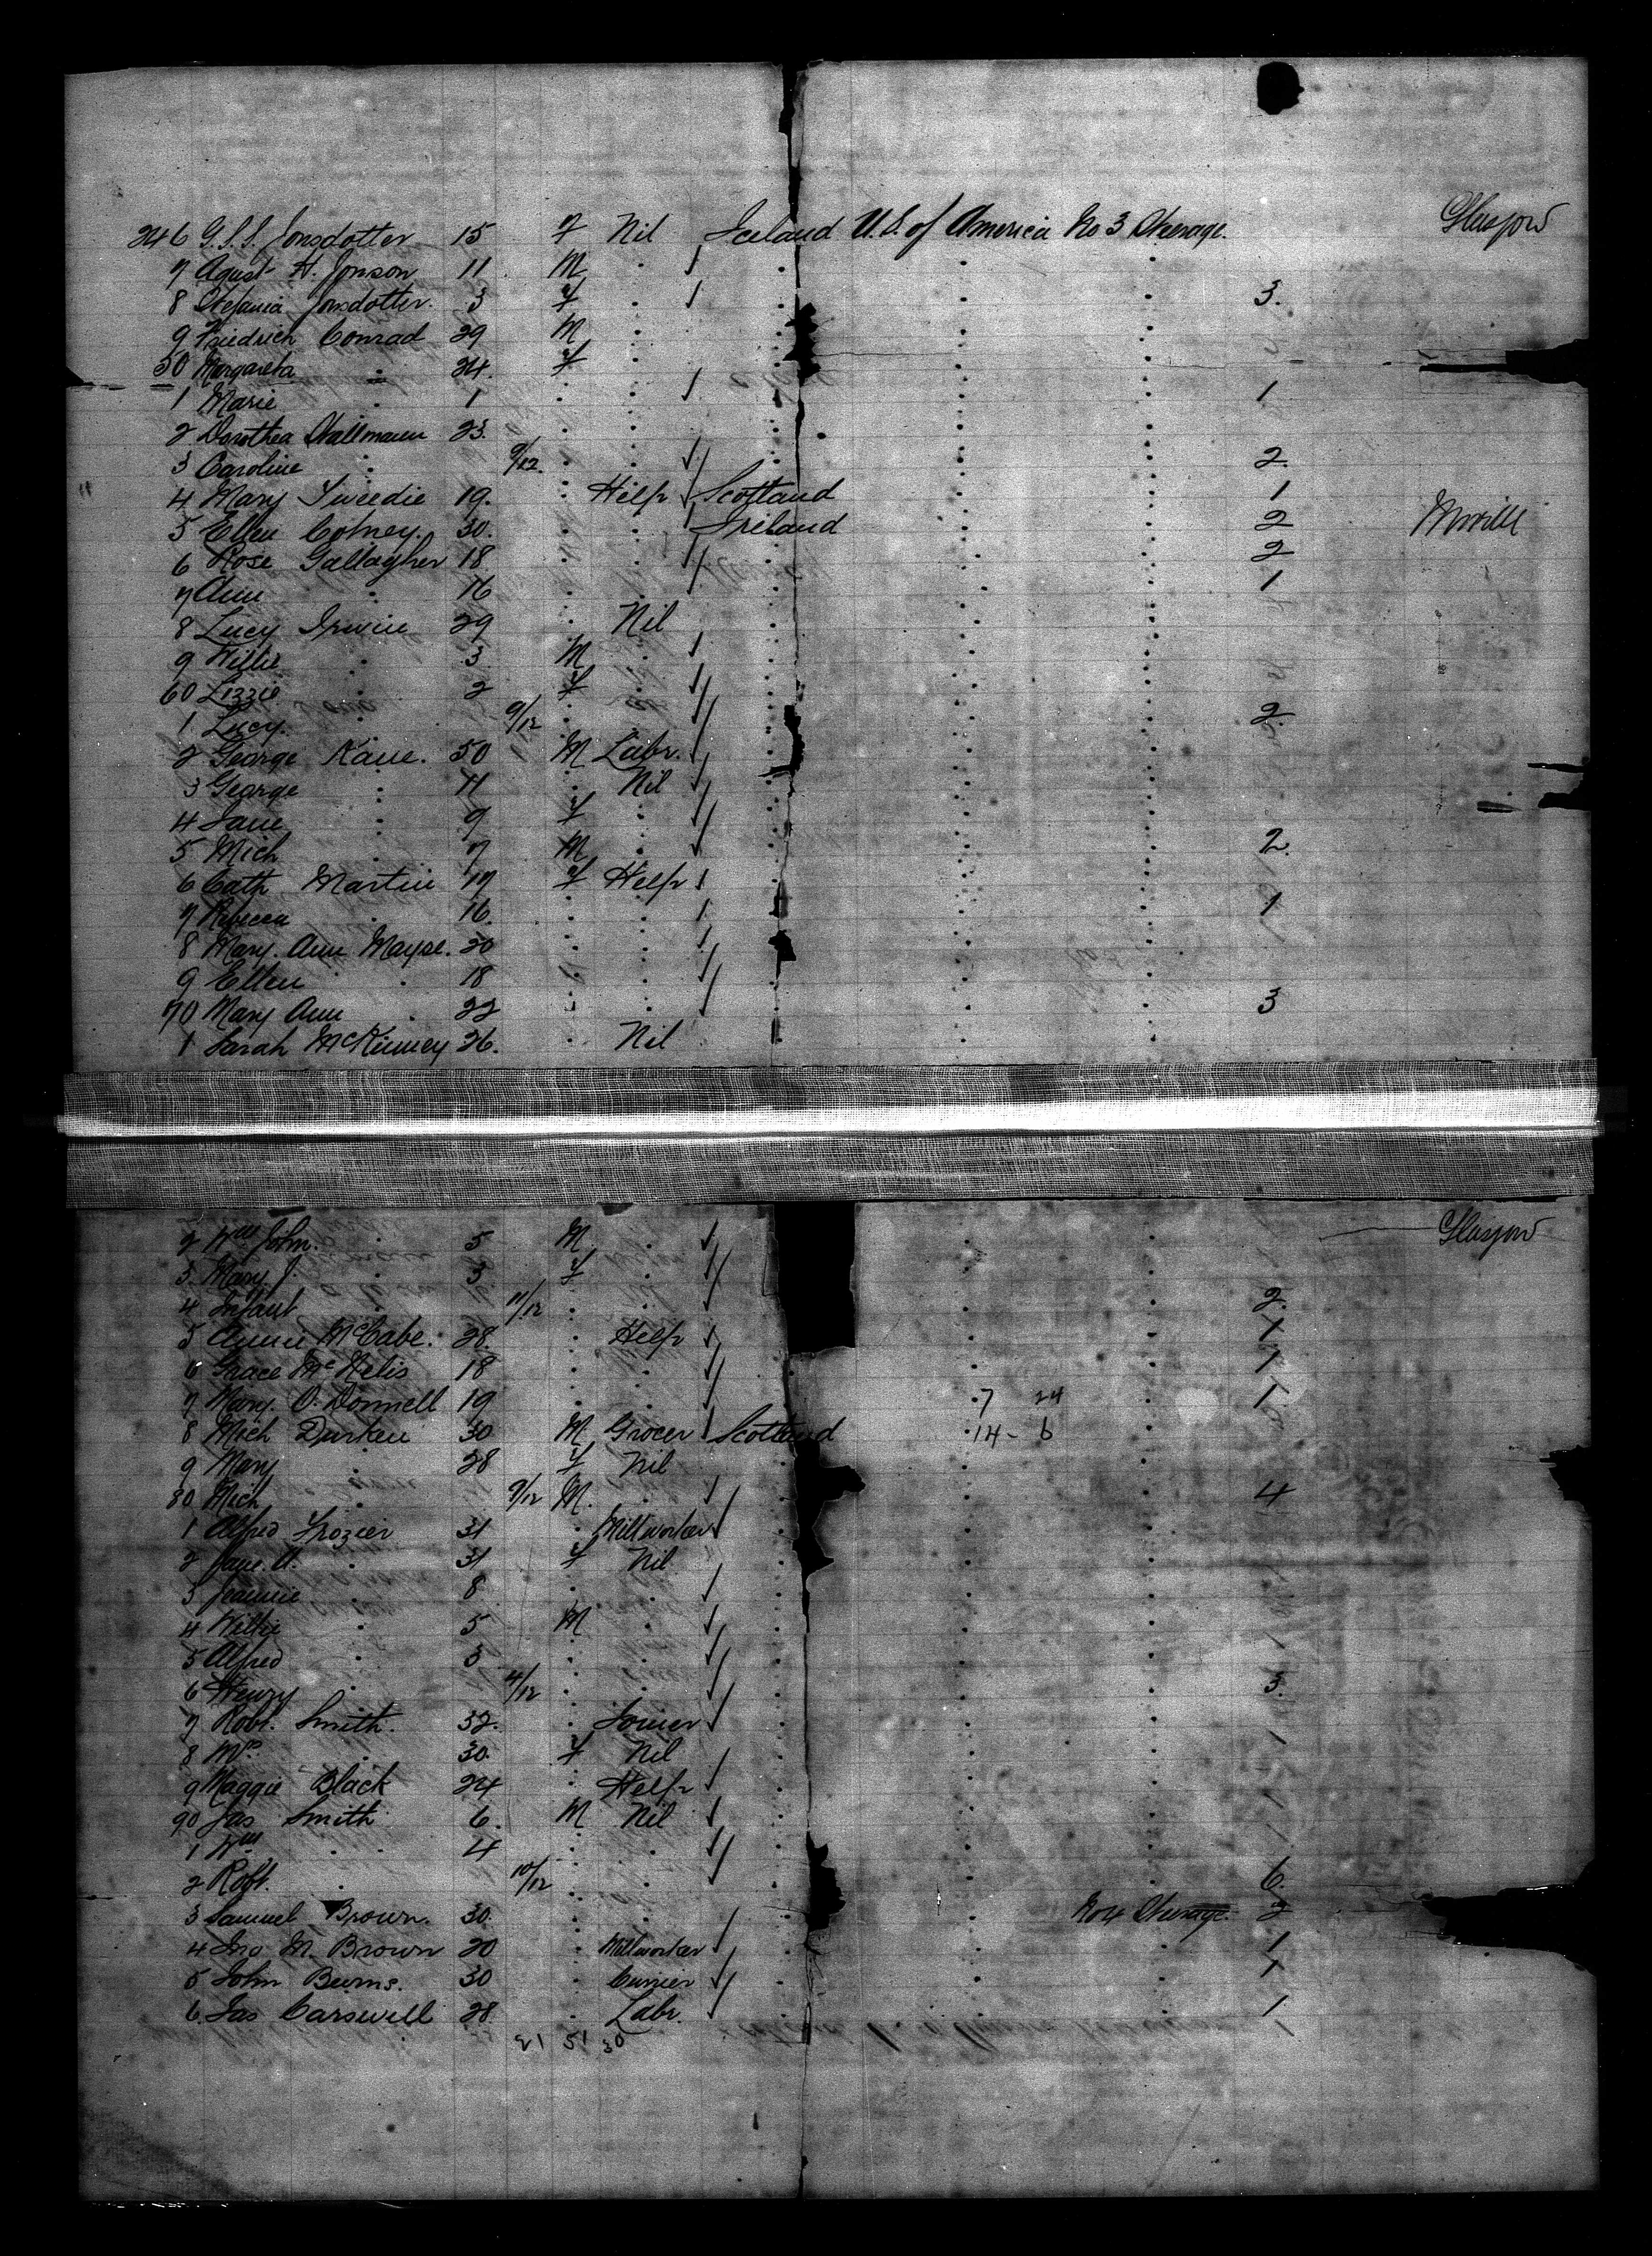 246 G.S.S. Jonsdotter 15 F Nil Iceland U.S. of America No 3 Steerage. Glasgow
7 Agust H. Jonson 11 M
8 Stefania Jonsdotter 3 F 3.
9 Friedrich Conrad 29 M
50 Margareta 24. F
1 Marie 1 1
2 Dorothea Wallmann 23.
3 Caroline 9/12. 2.
4 Mary Tweedie 19. Help Scotland 1
5 Ellen Cotney. 30. Ireland 2 Moville
6 Rose Gallagher 18 2
7 Ann 16 1
8 Lucy Irwin 29 Nil
9 Willie 3 M
60 Lizzie 2 F
1 Lucy. 9/12 2.
2 George Kane. 50 M Labr.
3 George 11 Nil
4 Jane 9 F
5 Mich 7 M 2.
6 Cath Martin 19 F Help
7 Rebecca 16. 1
8 Mary. Ann Mayse. 20
9 Ellen 18
70 Mary Ann 22 3
1 Sarah McKinney 26. Nil
2 Wm John. 5 M Glasgow
3. Mary J. 3 F
4 Infant 11/12 2.
5 Annie McCabe. 28. Help 1
6 Grace McNelis 18 1
7 Mary. O. Donnell 19 7 24 1.
8 Mich Durken 30 M Grocer Scotland 14- 6
9 Mary 28 F Nil
80 Mich 9/12 M. 4
1 Alfred Frozier 31 Millworker
2 Jane. A. 31 F Nil
3 Jeannie 8
4 Willie 5 M
5 Alfred 3
6 Henry 4/12 3.
7 Robt. Smith. 32. Joiner
8 Mrs 30. F Nil
9 Maggie Black 24 Help
90 Jas Smith 6. M Nil
1 Wm 4
2 Robt. 10/12 6.
3 Samuel Brown. 30. No 4 Steerage. 2
4 Jno M. Brown 20 Millworker 1
5 John Burns. 30 Currier 1
6. Jas Carswell 28. Labr. 1
21 51 30